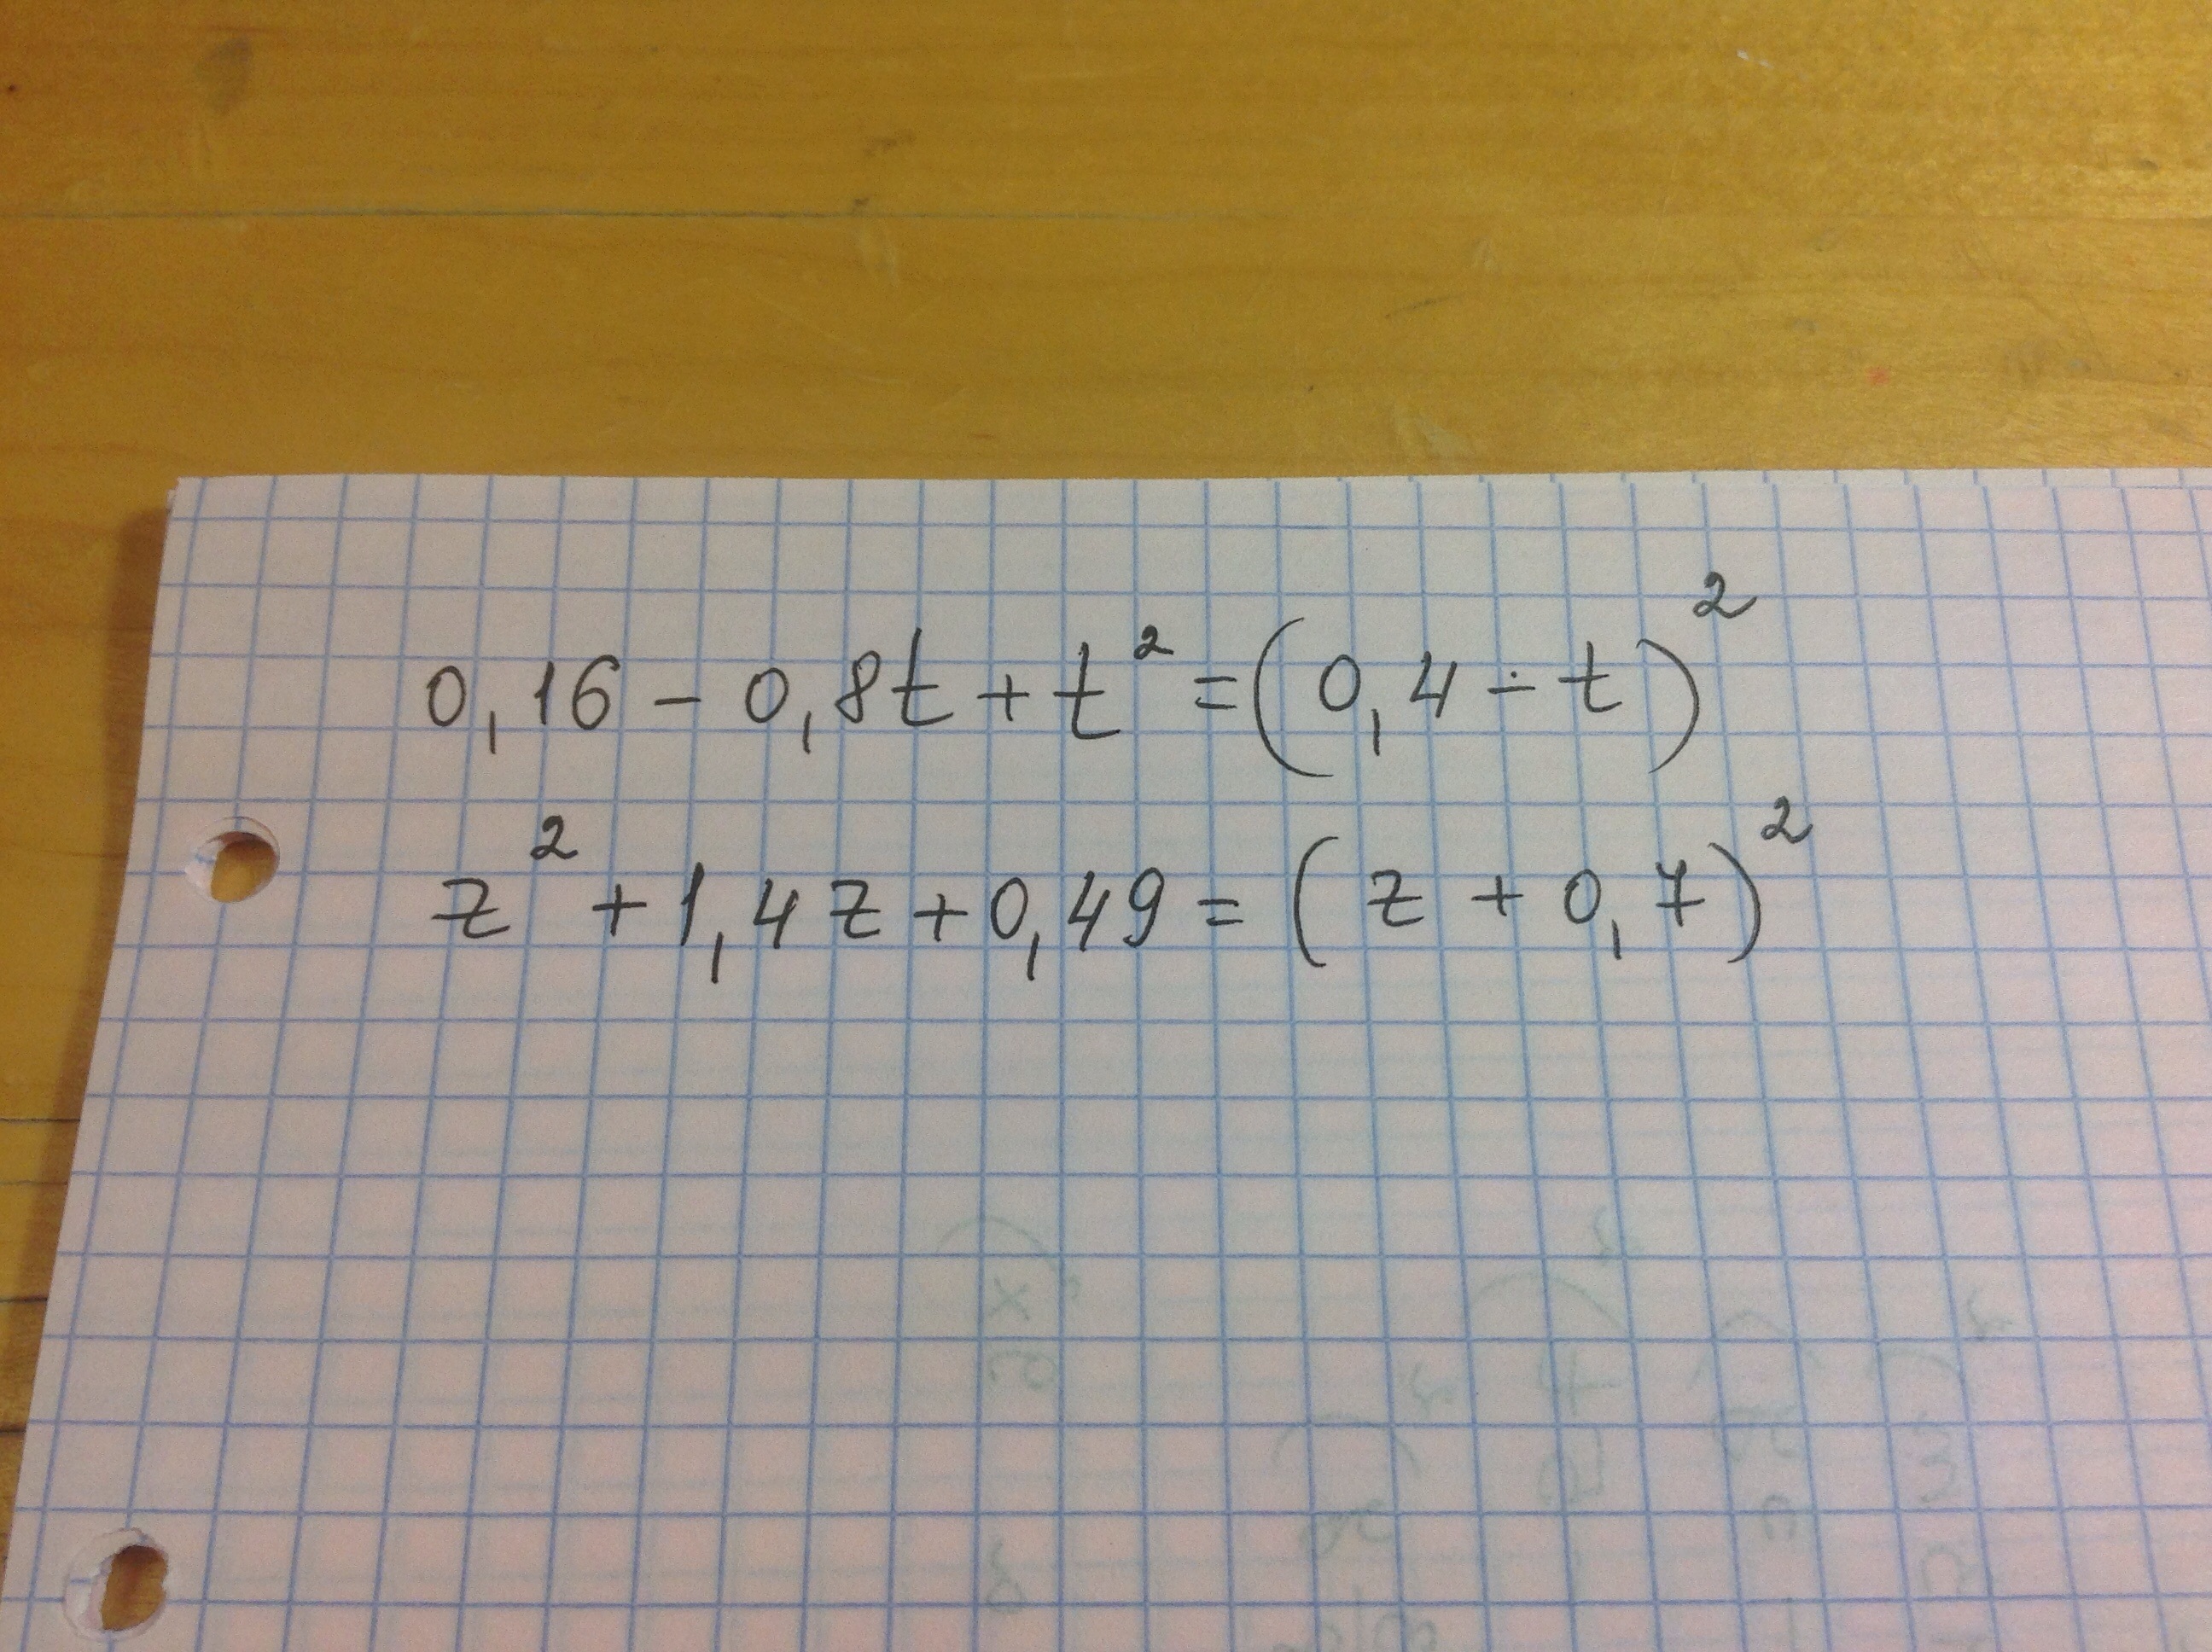 0,16 - 0,8t + t² = (0,4 - t)²
z² + 1,4z + 0,49 = (z + 0,7)²